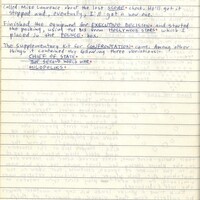 Called Mike Lawrence about the lost USDAW check. He'll get it
stopped and, eventually, I'll get a new one.
Finished the component for EXECUTIVE DECISION and started
the packing, using the big HOLLYWOOD STARS which I
placed in the POINCE box.
The Supplementary Kit for CONFRONTATION came. Among other
things it contained the following three variations:
CHIEF OF STATE
THE SECOND WORLD WAR
MILOPOLIES